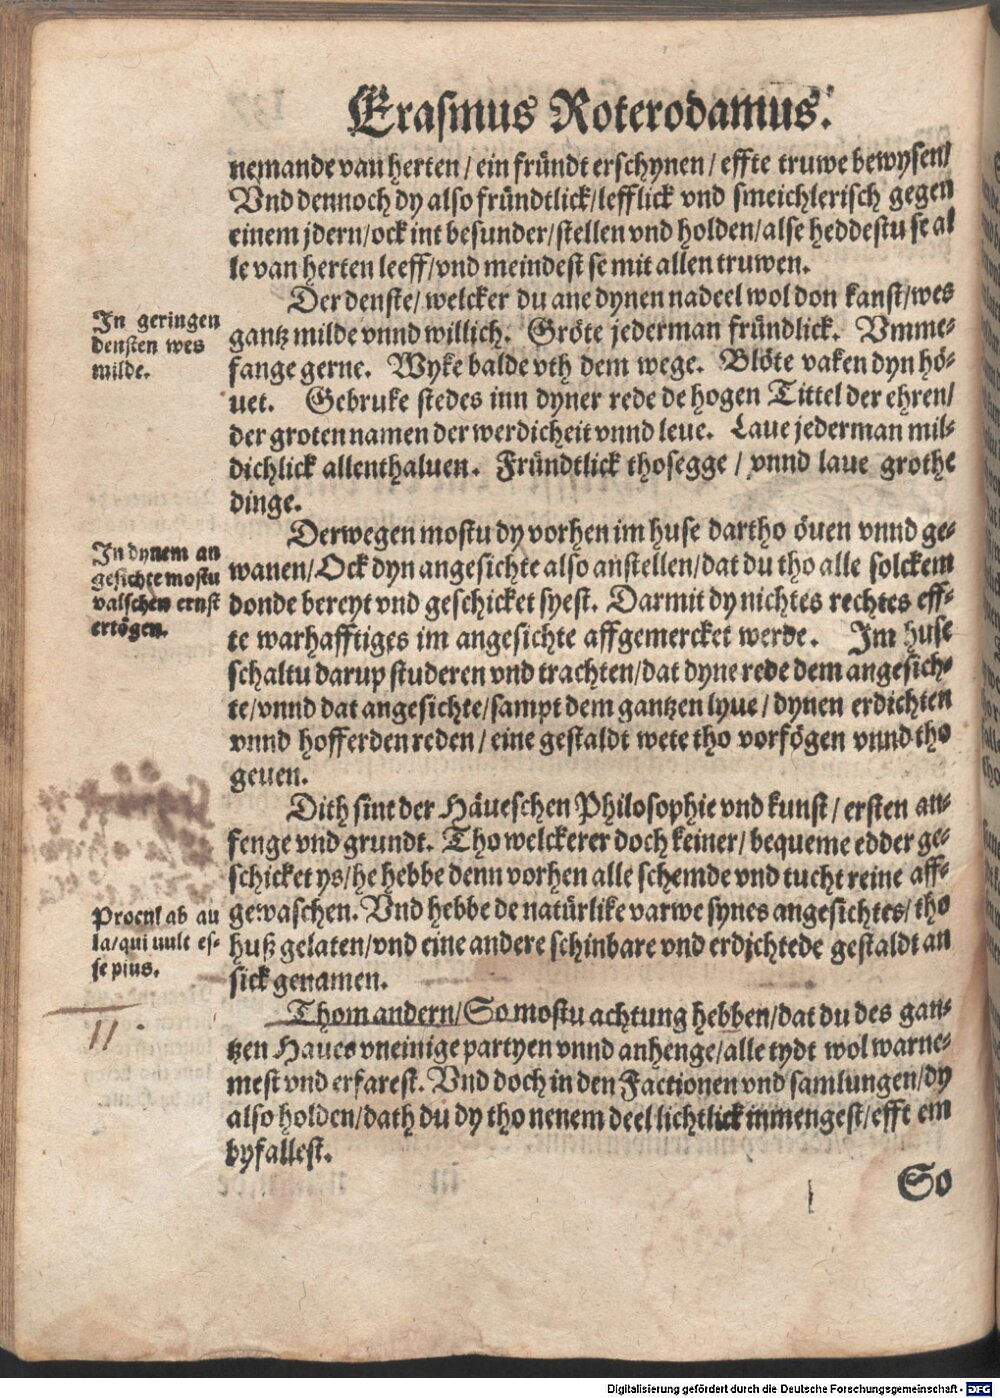 Erasmus Roterodamus.
nemande van herten / ein fründt erschynen / effte truwe bewysen/
Vnd dennoch dy also fründtlick/lefflick vnd smeichlerisch gegen
einem jdern/ock int besunder/stellen vnd holden/alse heddestu se al
le van herten leeff/vnd meindest se mit allen truwen.
Der denste/ welcker du ane dynen nadeel wol don kanst/wes
gantz milde vnnd willich. Gröte jederman fründlick. Vmme-
fange gerne. Wyke balde vth dem wege. Blöte vaken dyn hö-
uet. Gebruke stedes inn dyner rede de hogen Tittel der ehren/
der groten namen der werdicheit vnnd leue. Laue jederman mil-
dichlick allenthaluen. Fründtlick thosegge / vnnd laue grothe
dinge.
In geringen
densten wes
milde.
Derwegen mostu dy vorhen im huse dartho öuen vnnd ge-
wanen/Ock dyn angesichte also anstellen/dat du tho alle solckem
donde bereyt vnd geschicket syest. Darmit dy nichtes rechtes eff-
te warhafftiges im angesichte affgemercket werde. Im huse
schaltu darup studeren vnd trachten/dat dyne rede dem angesich-
te/vnnd dat angesichte/sampt dem gantzen lyue / dynen erdichten
vnnd hofferden reden / eine gestaldt wete tho vorfögen vnnd tho
geuen.
In dynem an
gesichte mostu
valschen ernst
ertögen.
Dith sint der Häueschen Philosophie vnd kunst / ersten an-
fenge vnd grundt. Tho welckerer doch keiner / bequeme edder ge-
schicket ys/he hebbe denn vorhen alle schemde vnd tucht reine aff-
gewaschen. Vnd hebbe de natürlike varwe synes angesichtes/ tho
huß gelaten/vnd eine andere schinbare vnd erdichtede gestaldt an
sick genamen.
Procul ab au
la/qui uult es-
se pius.
Thom andern/So mostu achtung hebben/dat du des gan-
tzen Haues vneinige partyen vnnd anhenge/alle tydt wol warne-
mest vnd erfarest. Vnd doch in den Factionen vnd samlungen/dy
also holden/dath du dy tho nenem deel lichtlick inmengest/efft em
byfallest.
11.
So
Digitalisierung gefördert durch die Deutsche Forschungsgemeinschaft - DFG